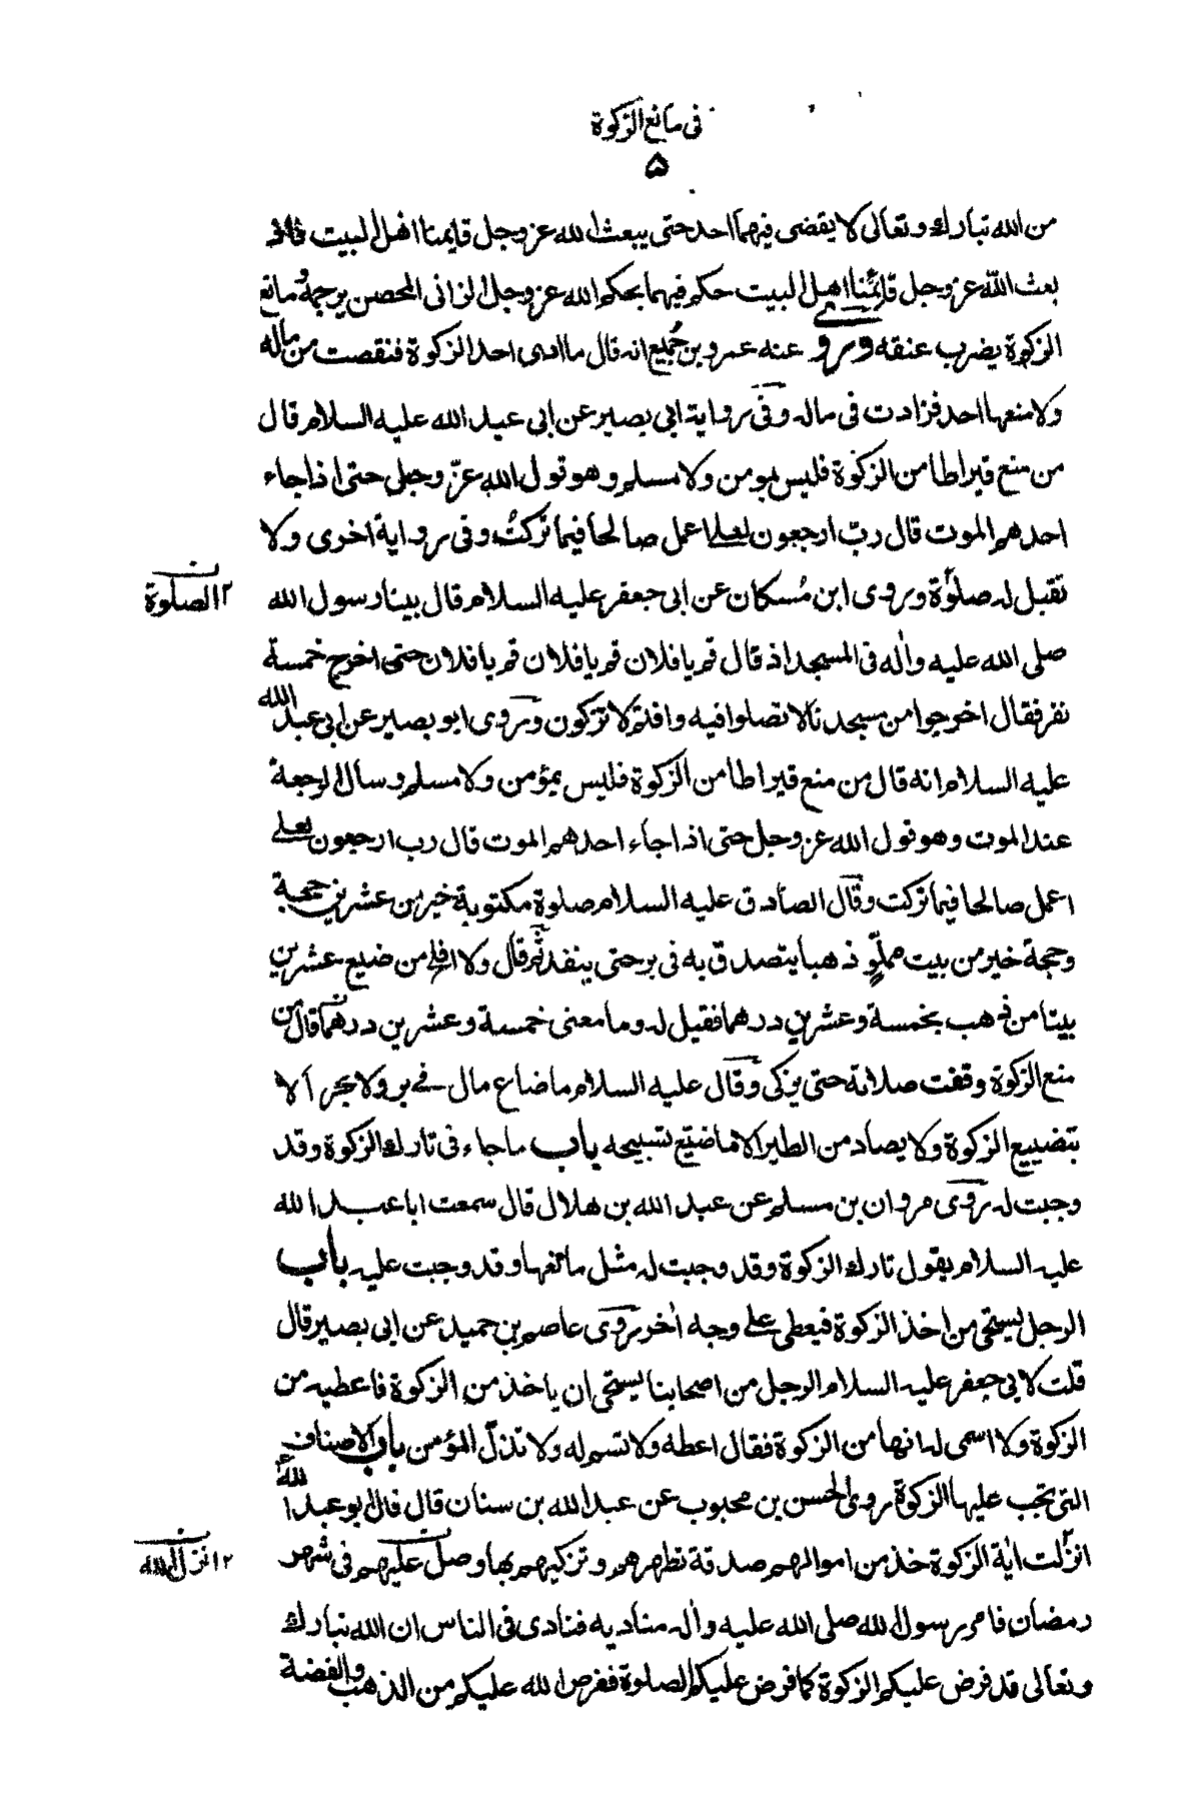 فى مانع الزكوة
۵
من الله تبارك وتعالى لا يقضى فيهما احد حتى يبعث الله عز وجل قايمنا اهل البيت فاذا
بعث اللّه عز وجل قائمنا اهل البيت حكم فيهما بحكم الله عز وجل الزانى المحصن يرجمه ومانع
الزكوة يضرب عنقه وروى عنه عمرو بن جُميع انه قال ما ادى احد الزكوة فنقصت من ماله
ولا منعها احد فزادت فى ماله وفى رواية ابى بصير عن ابى عبد الله عليه السلام قال
من منع قيراطا من الزكوة فليس بمومن ولا مسلم وهو قول الله عزّ وجل حتى اذا جاء
احدهم الموت قال ربّ ارجعون لعلى اعمل صالحا فيما تركتُ وفى رواية اخرى ولا
تقبل له صلوة وروى ابن مُسكان عن ابى جعفر عليه السلام قال بينا رسول الله
۲ الصلوة
صلى الله عليه واٰله فى المسجد اذ قال قم يا فلان قم يا فلان قم يا فلان حتى اخرج خمسة
نفر فقال اخرجوا من مسجدنا لا تصلوا فيه وانتم لا تزكون وروى ابو بصير عن ابى عبد الله
عليه السلام انه قال من منع قيراطا من الزكوة فليس بمؤمن ولا مسلم وسأل الرجعة
عند الموت وهو قول الله عز وجل حتى اذا جاء احدهم الموت قال رب ارجعون لعلى
اعمل صالحا فيما تركت وقال الصادق عليه السلام صلوة مكتوبة خير من عشرين حجة
وحجة خير من بيت مملوّ ذهبا يتصدق به فى بر حتى ينفد ثم قال ولا افلح من ضيع عشرين
بيتا من ذهب بخمسة وعشرين درهما فقيل له وما معنى خمسة وعشرين درهما قال من
منع الزكوة وقفت صلاته حتى يزكى وقال عليه السلام ما ضاع مال فى بر ولا بحر الا
بتضييع الزكوة ولا يصاد من الطير الا ما ضيّع تسبيحه باب ما جاء فى تارك الزكوة وقد
وجبت له روى مروان بن مسلم عن عبد الله بن هلال قال سمعت ابا عبد الله
عليه السلام يقول تارك الزكوة وقد وجبت له مثل مانعها وقد وجبت عليه باب
الرجل يستحى من اخذ الزكوة فيعطى على وجه اٰخر روى عاصم بن حميد عن ابى بصير قال
قلت لابى جعفر عليه السلام الرجل من اصحابنا يستحى ان ياخذ من الزكوة فاعطيه من
الزكوة ولا اسمى له انها من الزكوة فقال اعطه ولا تسم له ولا تذلّ المؤمن باب الاصناف
التى تجب عليها الزكوة روى الحسن بن محبوب عن عبد الله بن سنان قال قال ابو عبد الله ع
انزلت اٰية الزكوة خذ من اموالهم صدقة تطهرهم وتزكيهم بها وصل عليهم فى شهر
۲ انزل الله
رمضان فامر رسول الله صلى الله عليه واٰله مناديه فنادى فى الناس ان الله تبارك
وتعالى قد فرض عليكم الزكوة كما فرض عليكم الصلوة ففرض الله عليكم من الذهب والفضة